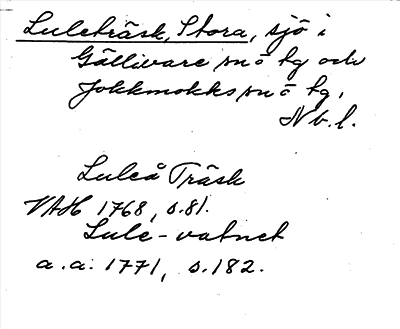 Luleträsk, Stora, sjö i
Gällivare sn o tg och
Jokkmokks sn o tg,
Nb. l.
Luleå Träsk
VAH 1768, s. 81.
Lule-vatnet
a. a. 1771, s. 182.